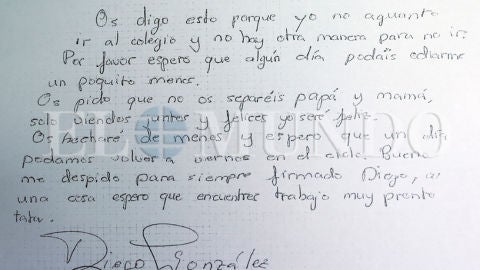 Os digo esto porque yo no aguanto
ir al colegio y no hay otra manera para no ir.
Por favor espero que algún día podáis odiarme
un poquito menos.
Os pido que no os separéis papá y mamá,
solo viendoos juntos y felices yo seré feliz.
Os hecharé de menos y espero que un día
podamos volver a vernos en el cielo. Bueno
me despido para siempre firmado Diego, a
una cosa espero que encuentres trabajo muy pronto
tata.
Diego González
EL MUNDO